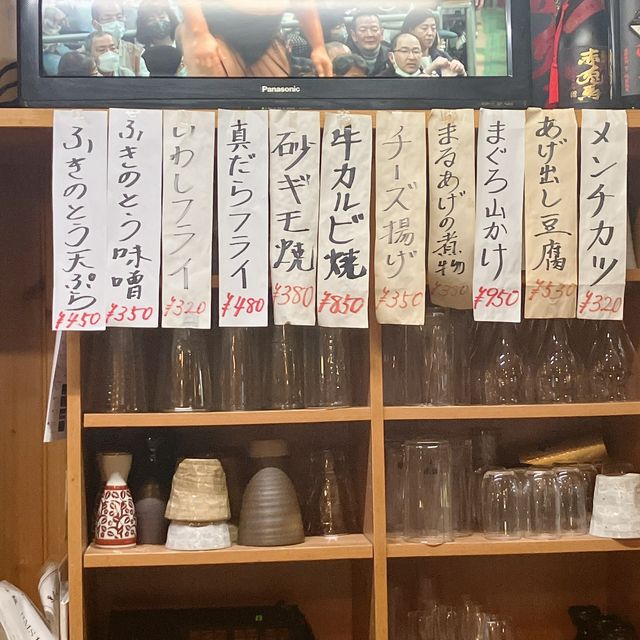 Panasonic
ふきのとう天ぷら
¥450
ふきのとう味噌
¥350
いわしフライ
¥320
真だらフライ
¥480
砂ギモ焼
¥380
牛カルビ焼
¥850
チーズ揚げ
¥350
まるあげの煮物
¥350
まぐろ山かけ
¥950
あげ出し豆腐
¥530
メンチカツ
¥320